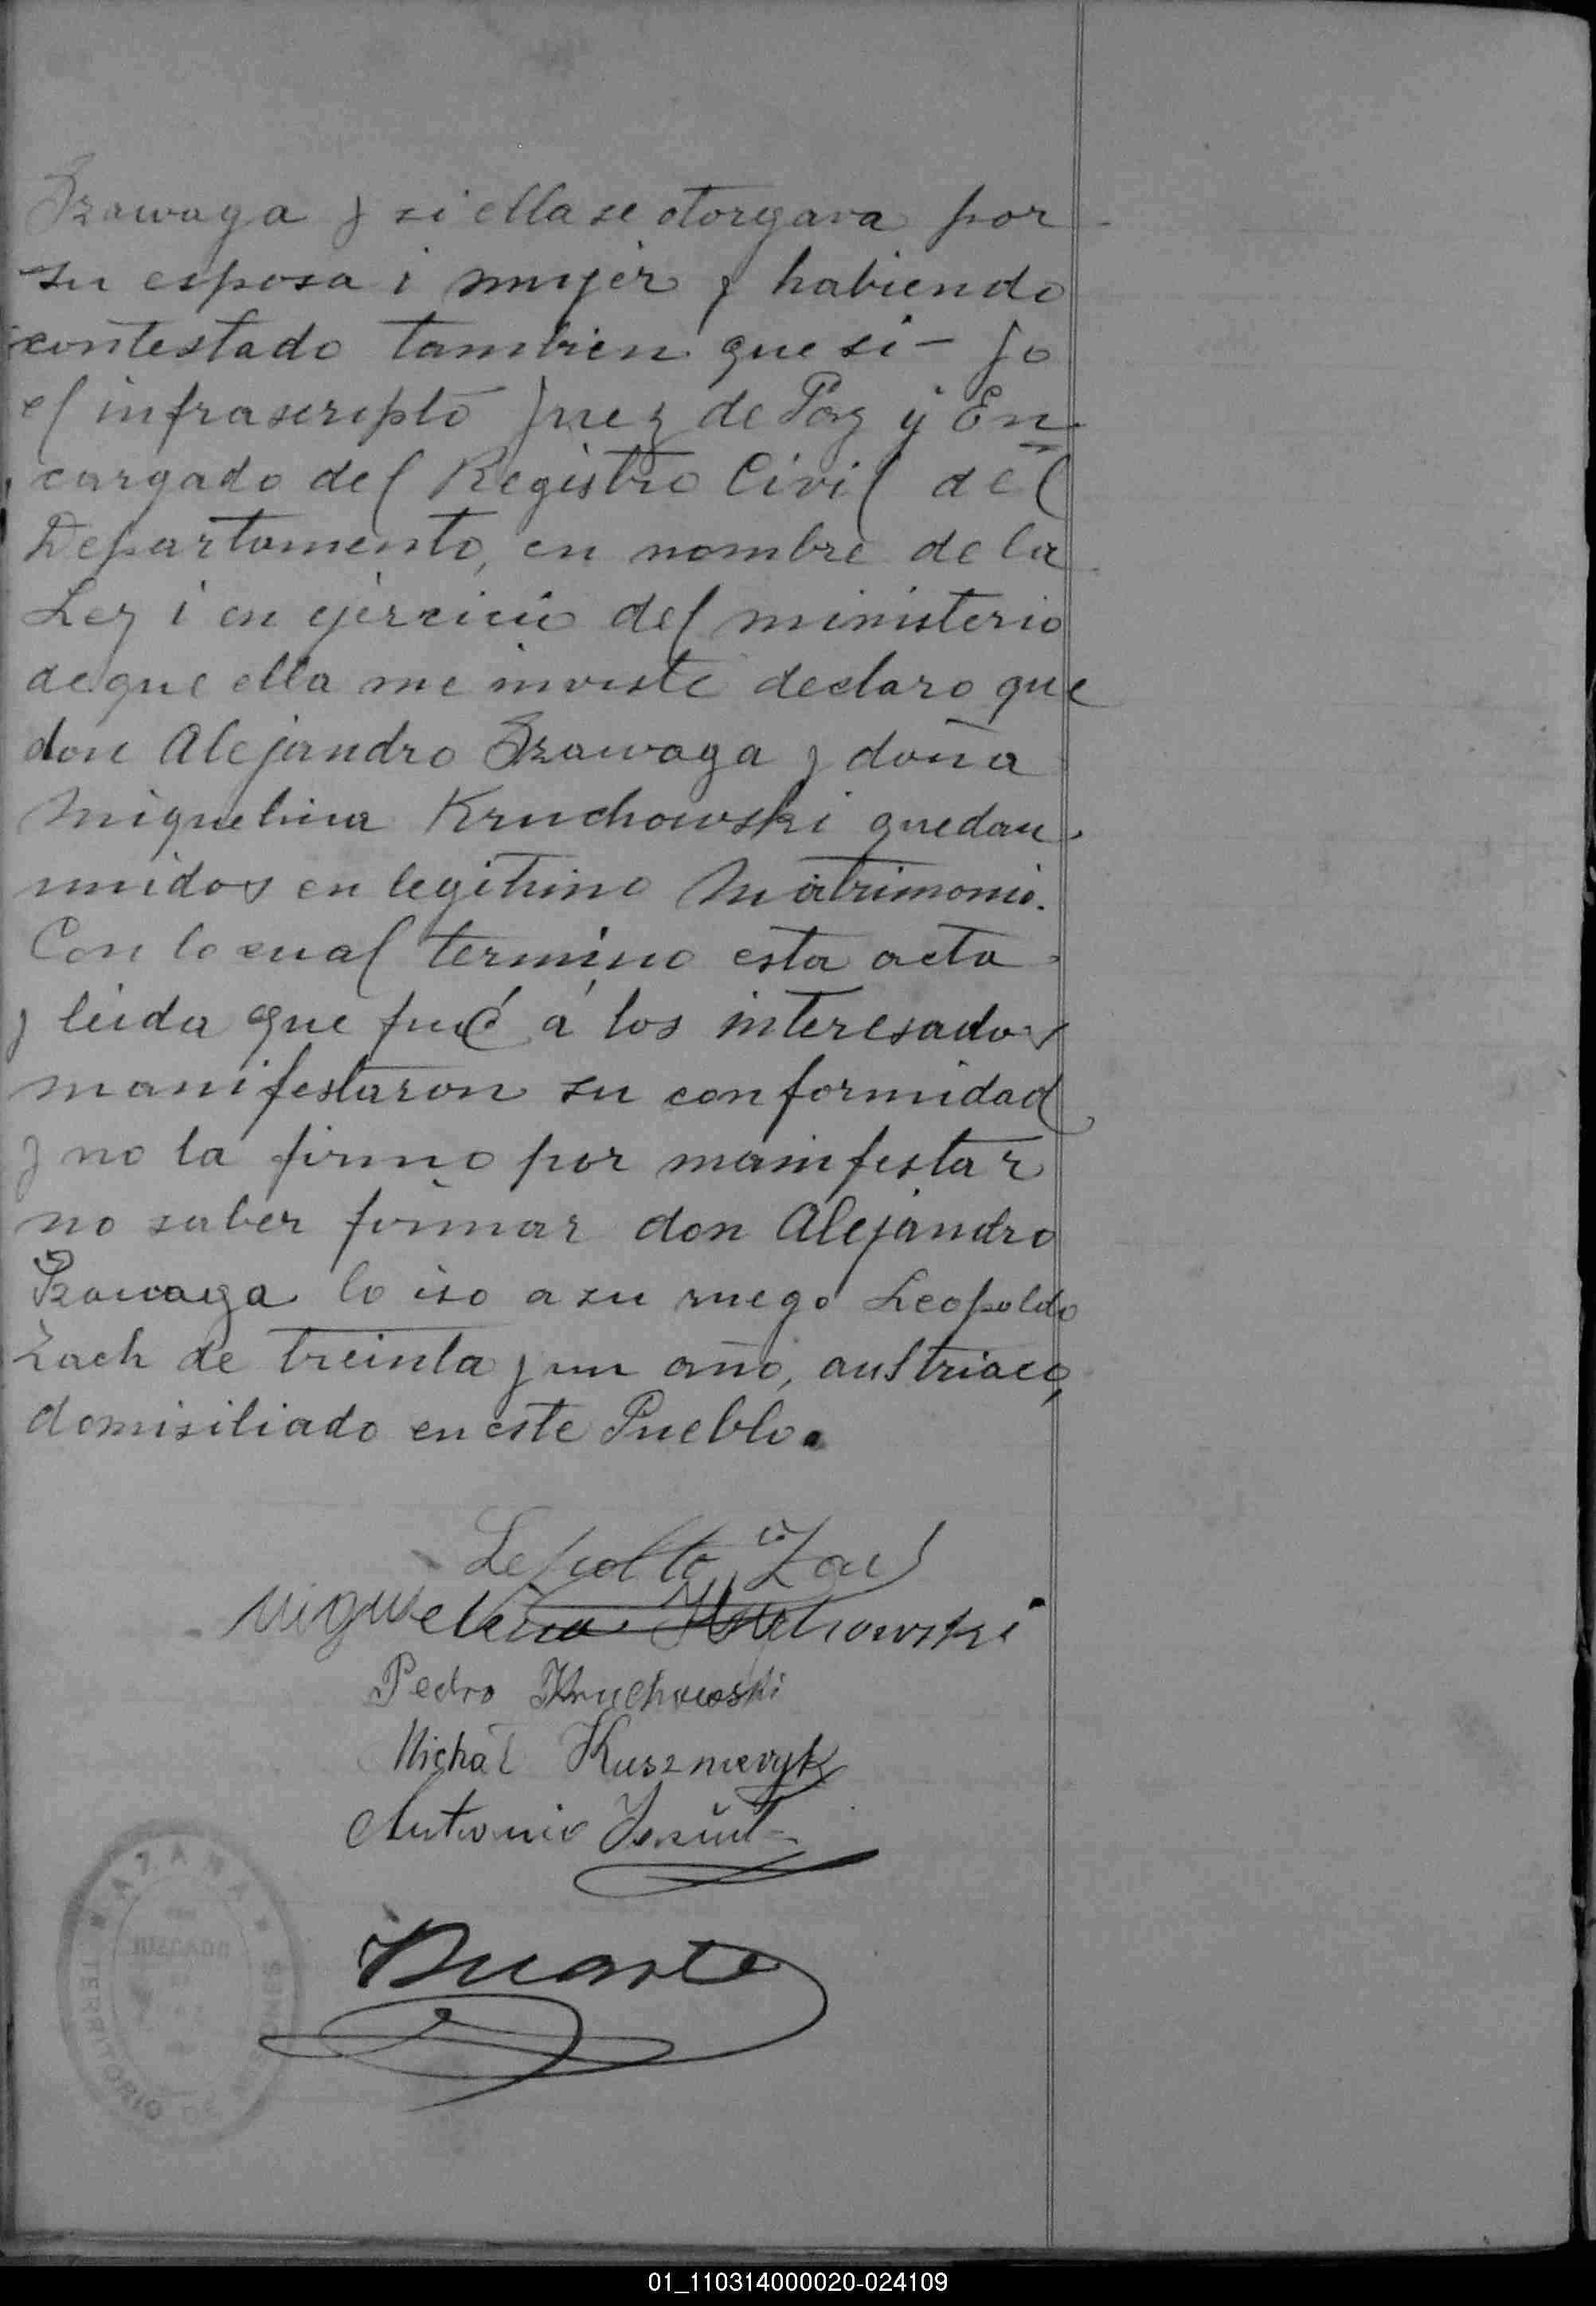 Szawaga y si ella se otorgava por
su esposa i mujer y habiendo
contestado tambien que si – yo
el infrascripto Juez de Paz y En
cargado del Registro Civil del
Departamento, en nombre de la
Ley i en ejercicio del ministerio
de que ella me inviste declaro que
don Alejandro Szawaga y doña
Miguelina Kruchowski quedan
unidos en legitimo Matrimonio.
Con lo cual termino esta acta
y leida que fué á los interesados
manifestaron su conformidad
y no la firmo por manifestar
no saber firmar don Alejandro
Szawaga lo iso a su ruego Leopoldo
Zach de treinta y un año, austriaco,
domisiliado en este Pueblo.
Miguelina Kruchowski
Pedro Kruchowski
Michał
Antonio
Duarte
AZARA
JUZGADO
TERRITORIO DE MISIONES
01_110314000020-024109